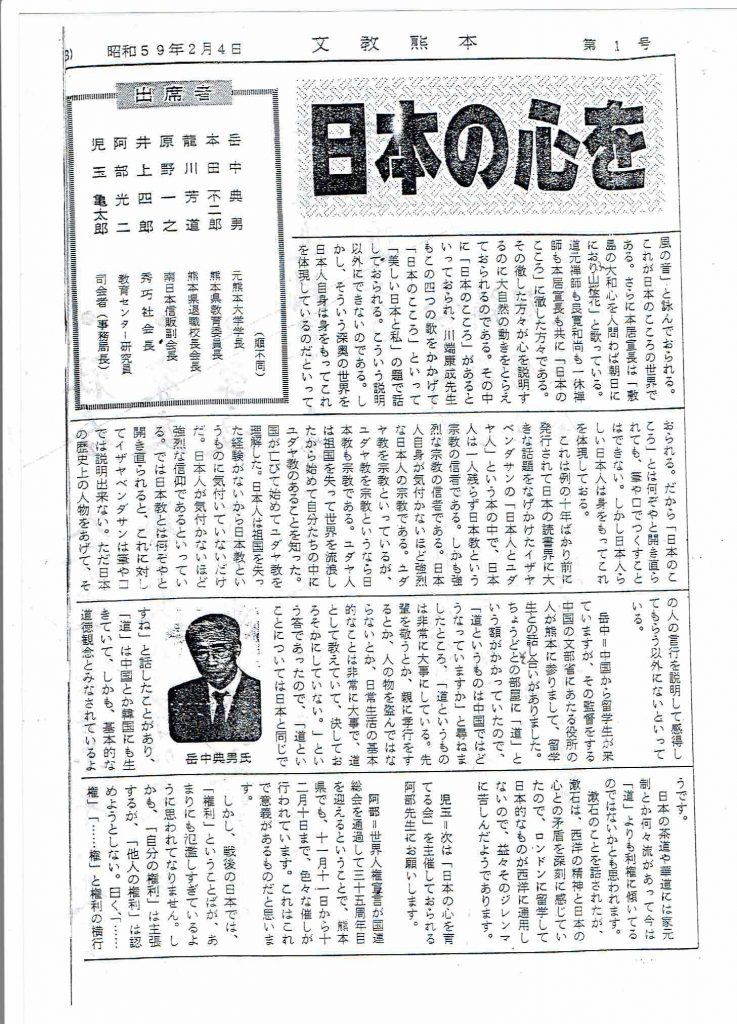 昭和59年2月4日
文教熊本
第1号
日本の心を
出席者
岳中典男 元熊本大学学長
本田不二郎 熊本県教育委員長
龍川芳道 熊本県退職校長会長
原野一之 南日本信販副会長
井上四郎 秀巧社会長
阿部光二 教育センター研究員
児玉亀太郎 司会者(事務局長)
(順不同)
風の言」と詠んでおられる。
これが日本のこころの世界で
ある。さらに本居宣長は「敷
島の大和心を人問わば朝日に
におり山桜花」と歌っている。
道元禅師も良寛和尚も一休禅
師も本居宣長も共に「日本の
こころ」に徹した方々である。
その徹した方々が心を説明す
るのに大自然の動きをとらえ
ておられるのである。その中
に「日本のこころ」があると
いっておられ、川端康成先生
もこの四つの歌をかかげて
「日本のこころ」といって
「美しい日本と私」の題で話
しておられる。こういう説明
以外にできないのである。し
かし、そういう深奥の世界を
日本人自身は身をもってこれ
を体現しているのだといって
おられる。だから「日本のこ
ころ」とは何ぞやと開き直ら
れても、筆や口でつくすこと
はできない。しかし日本人ら
しい日本人は身をもってこれ
を体現しておる。
これは例の十年ばかり前に
発行されて日本の読書界に大
きな話題をなげかけたイザヤ
ベンダサンの「日本人とユダ
ヤ人」という本の中で、日本
人は一人残らず日本教という
宗教の信者である。しかも強
烈な宗教の信者である。日本
人自身が気付かないほど強烈
な日本人の宗教である。ユダ
ヤ教を宗教といっているが、
ユダヤ教を宗教というなら日
本教も宗教である。ユダヤ人
は祖国を失って世界を流浪し
たから始めて自分たちの中に
ユダヤ教のあることを知った。
国が亡びて始めてユダヤ教を
理解した。日本人は祖国を失っ
た経験がないから日本教とい
うものに気付いていないだけ
だ。日本人が気付かないほど
強烈な信仰であるといってい
る。では日本教とは何ぞやと
開き直られると、これに対し
てイザヤベンダサンは筆や口
では説明出来ない。ただ日本
の歴史上の人物をあげて、そ
の人の言行を説明して感得し
てもらう以外にないといって
いる。
岳中=中国から留学生が来
ていますが、その監督をする
中国の文部省にあたる役所の
人が熊本に参りまして、留学
生との話し合いがありました。
ちょうどその部屋に「道」と
いう額がかかっていたので、
「道というものは中国ではど
うなっていますか」と尋ねま
したところ、「道というもの
は非常に大事にしている。先
輩を敬うとか、親に孝行をす
るとか、人の物を盗んではな
らないとか、日常生活の基本
的なことは非常に大事で、道
として教えていて、決してお
ろそかにしていない。」とい
う答であったので、「道とい
うことについては日本と同じで
すね」と話したことがあり、
「道」は中国とか韓国にも生
きていて、しかも、基本的な
道徳観念とみなされているよ
岳中典男氏
うです。
日本の茶道や華道には家元
制とか何々流があって今は
「道」よりも利権に傾いてる
のではないかとも思われます。
漱石のことを話されたが、
漱石は、西洋の精神と日本の
心との矛盾を深刻に感じてい
たので、ロンドンに留学して
日本的なものが西洋に通用し
ないので、益々そのジレンマ
に苦しんだようであります。
児玉=次は「日本の心を育
てる会」を主催しておられる
阿部先生にお願いします。
阿部=世界人権宣言が国連
総会を通過して三十五周年目
を迎えるということで、熊本
県でも、十一月十一日から十
二月十日まで、色々な催しが
行われています。これはこれ
で意義があるものだと思いま
す。
しかし、戦後の日本では、
「権利」ということばが、あ
まりにも氾濫しすぎているよ
うに思われてなりません。し
かも、「自分の権利」は主張
するが、「他人の権利」は認
めようとしない。曰く、「……
権」「……権」と権利の横行